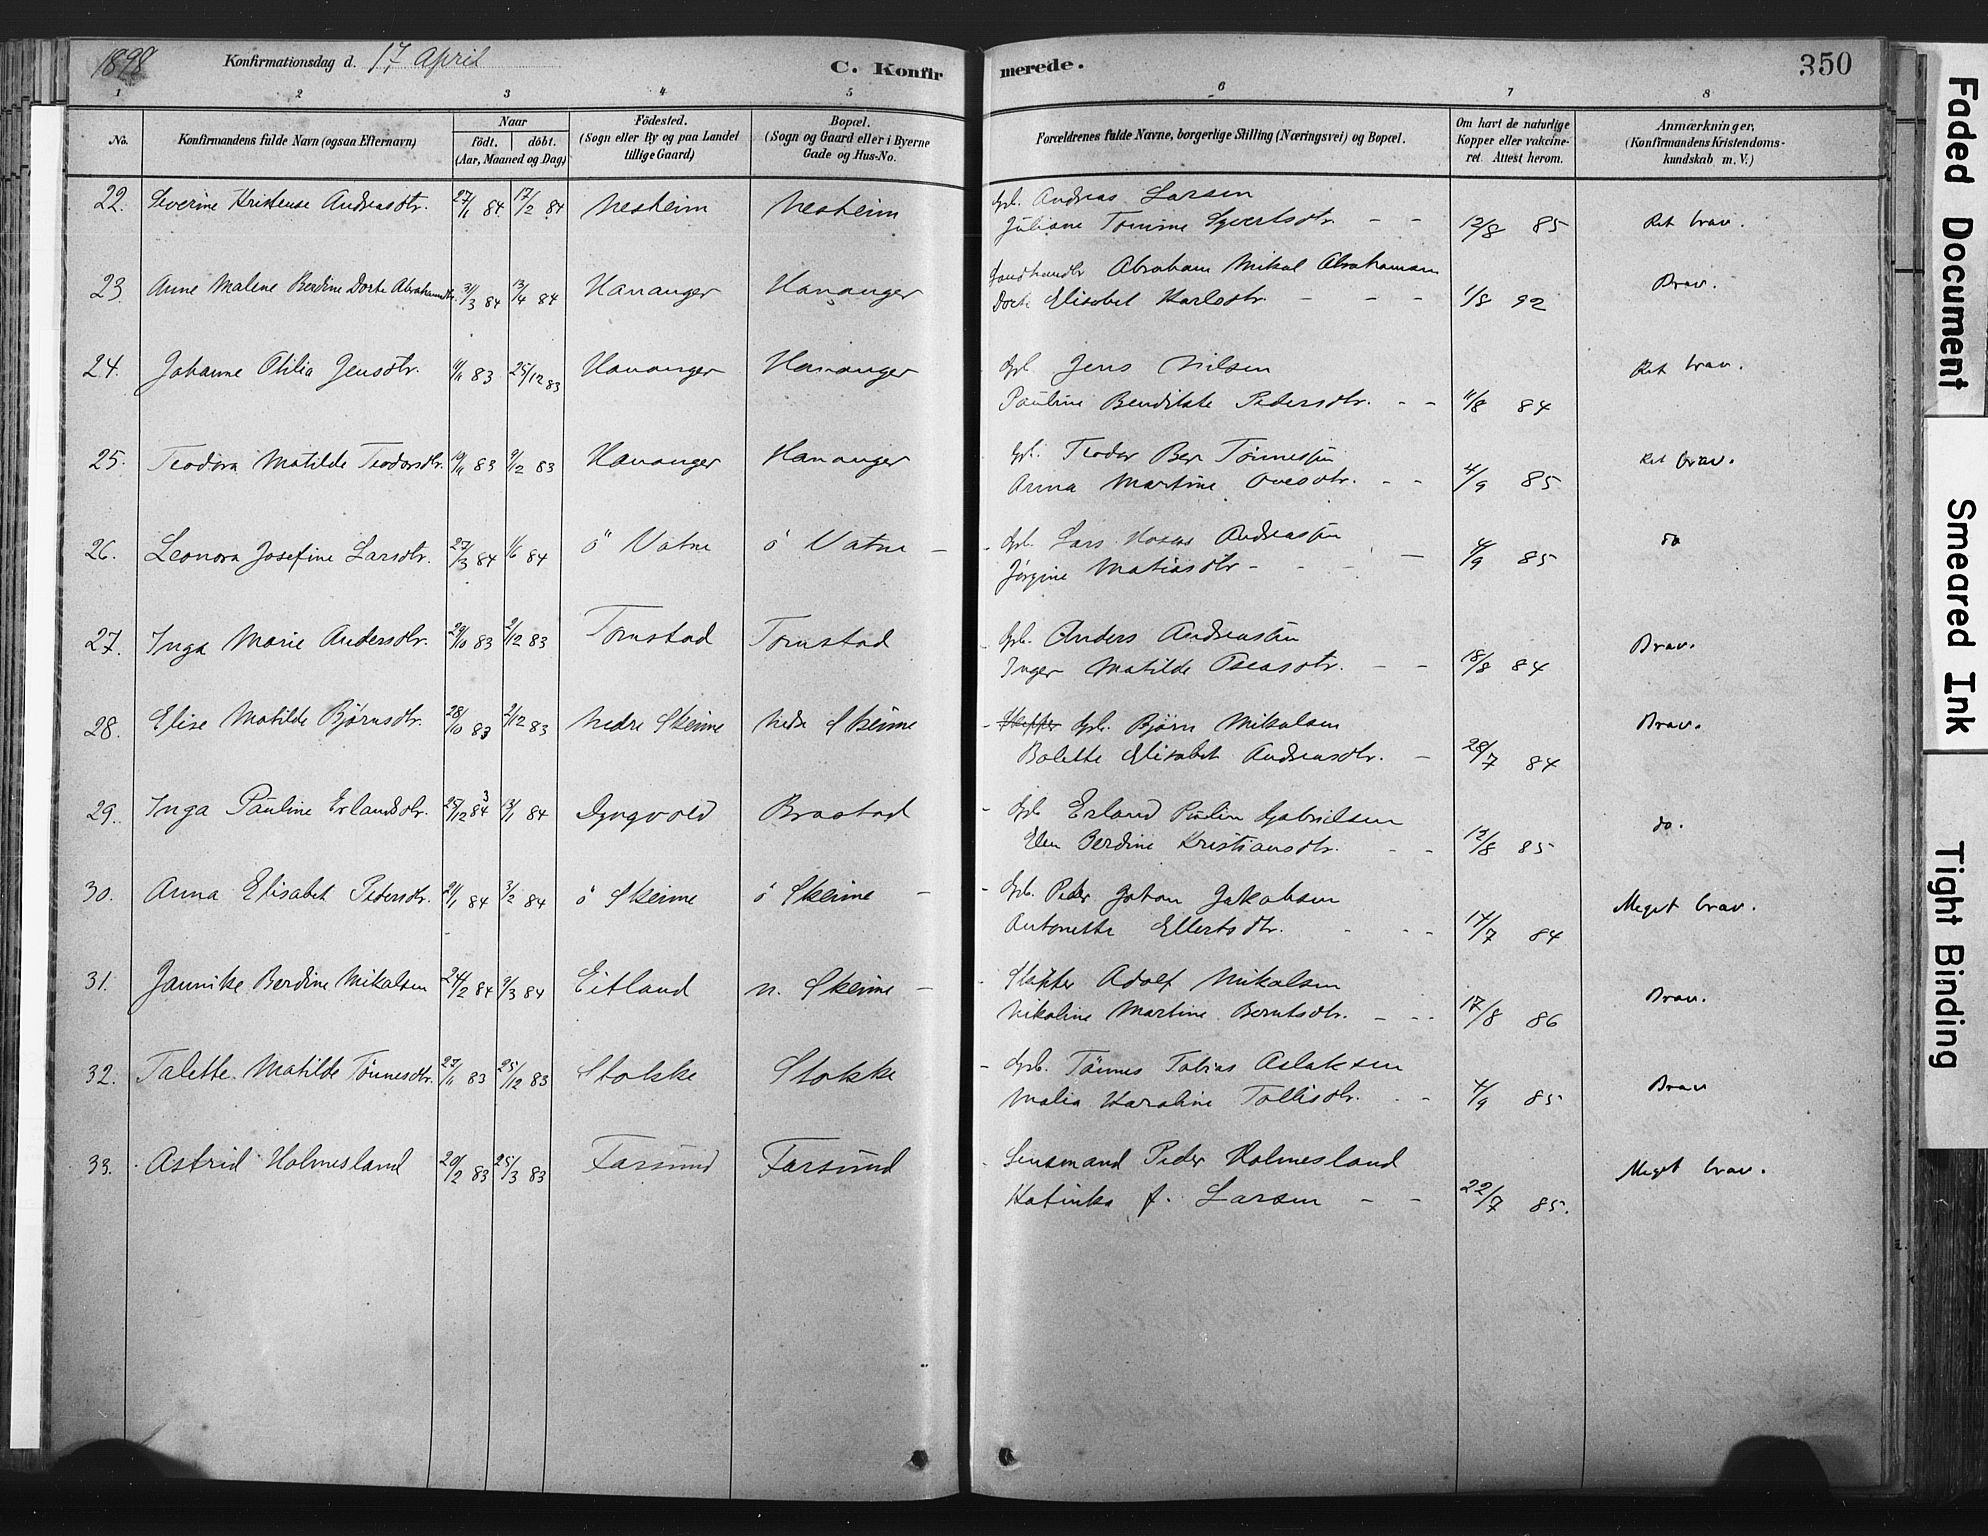 1898 Konfirmationsdag d. 17 April C. Konfirmerede. 350
1 2 3 4 5 6 7 8
No. Konfirmandens fulde Navn (ogsaa Efternavn) Naar født. døbt. (Aar, Maaned og Dag) Fødested. (Sogn eller By og paa Landet tillige Gaard) Bopæl. (Sogn og Gaard eller i Byerne Gade og Hus-No. Forældrenes fulde Navne, borgerlige Stilling (Næringsvei) og Bopæl. Om havt de naturlige Kopper eller vakcineret. Attest herom. Anmærkninger, (Konfirmandens Kristendomskundskab m. V.)
22. Severine Kristense Andreasdtr. 27/1 84 17/2 84 Nesheim Nesheim Gbr. Andreas Larsen
Juliane Tomine Syvertsdtr. - - 12/8 85 Ret brav.
23 Anne Malene Berdine Dorte Abrahamsdtr. 31/3 84 13/4 84 Hananger Hananger Abraham Mikal Abrahamsen
Dorte Elisabet Karlsdtr. - - - 1/8 92 Brav.
24. Johanne Otilia Jensdtr. 11/11 83 25/12 83 Hananger Hananger Gbr. Jens Nilsen
Pauline Benedikte Pedersdtr. - - 11/8 84 Ret brav.
25. Teodora Matilde Teodorsdtr. 19/11 83 9/12 83 Hananger Hananger Gbr. Teodor Ber Tønnessen
Anna Martine Ovesdtr. - - 4/9 85 Ret brav.
26. Leonora Josefine Larsdtr. 27/3 84 1/6 84 ö Vatne ö Vatne - - Gbr. Lars Andreassen
Jørgine Matiasdtr - - - - 4/9 85 do
27. Inga Marie Andersdtr. 29/10 83 2/12 83 Tomstad Tomstad - Gbr. Anders Andreassen
Inger Matilde Oseasdtr. - - 18/8 84 Brav.
28. Elise Matilde Bjørnsdtr. 28/10 83 2/12 83 Nedre Skeime Nedre Skeime - Gbr. Bjørn Mikalsen
Bolette Elisabet Andreasdtr. - 28/7 84 Brav.
29. Inga Pauline Erlandsdtr. 25/12 83 13/1 84 Dyngvold Brastad - Gbr Erland Gabrielsen
Elen Berdine Kristiansdtr. - - 12/8 85 do.
30. Anna Elisabet Pedersdtr. 21/1 84 3/2 84 ö Skeime ö Skeime - - Gbr. Peder Johan Jakobsen
Antonette Ellertsdtr. - - - 14/7 84 Meget brav.
31. Jannike Berdine Mikalsen 24/2 84 9/3 84 Eitland n. Skeime - Skipper Adolf Mikalsen
Nikoline Martine Berntsdtr. - - - 17/8 86 Brav.
32. Talette Matilde Tønnesdtr. 27/11 83 25/12 83 Stokke Stokke - Gbr. Tønnes Tobias Aslaksen
Malia Karoline Tollisdtr. - - 4/9 85 Brav
33. Astrid Holmesland 20/2 83 25/3 83 Farsund Farsund - Lensmand Peder Holmesland
Katinka f. Larsen - - 22/7 85. Meget brav.
Faded Document
Smeared Ink
Tight Binding